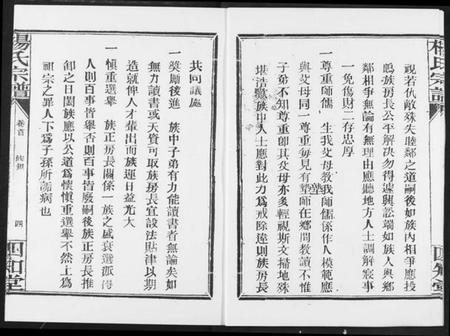 楊氏宗譜
視若仇敵殊失睦鄰之道嗣後如族內相爭應投
鳴族房長公平解決勿得遽興訟端如族人與鄉
鄰相爭無論有無理由應聽地方人士調解寢事
一免傷財二存忠厚
一尊重師儒 生我父母教我師儒係作人模範應
與父母同一尊重每見有望師在鄉間教讀不惟
子弟不知尊重卽其父母亦多輕視斯文掃地殊
堪浩歎族中人士應對此力爲戒除違則族房長
四知堂
共同議處
一獎勵後進 族中子弟有力能讀書者無論矣如
無力讀書或天資可取族房長宜設法貼津以期
造就俾人才輩出而族運日益光大
一愼重選舉 族正房長關係一族之盛衰選派得
人則百事皆舉否則百事皆廢嗣後族正房長推
卸之日闔族應以公道爲懷愼重選舉不然上爲
祖宗之罪人下爲子孫所詬病也
楊氏宗譜
卷首
四
四知堂